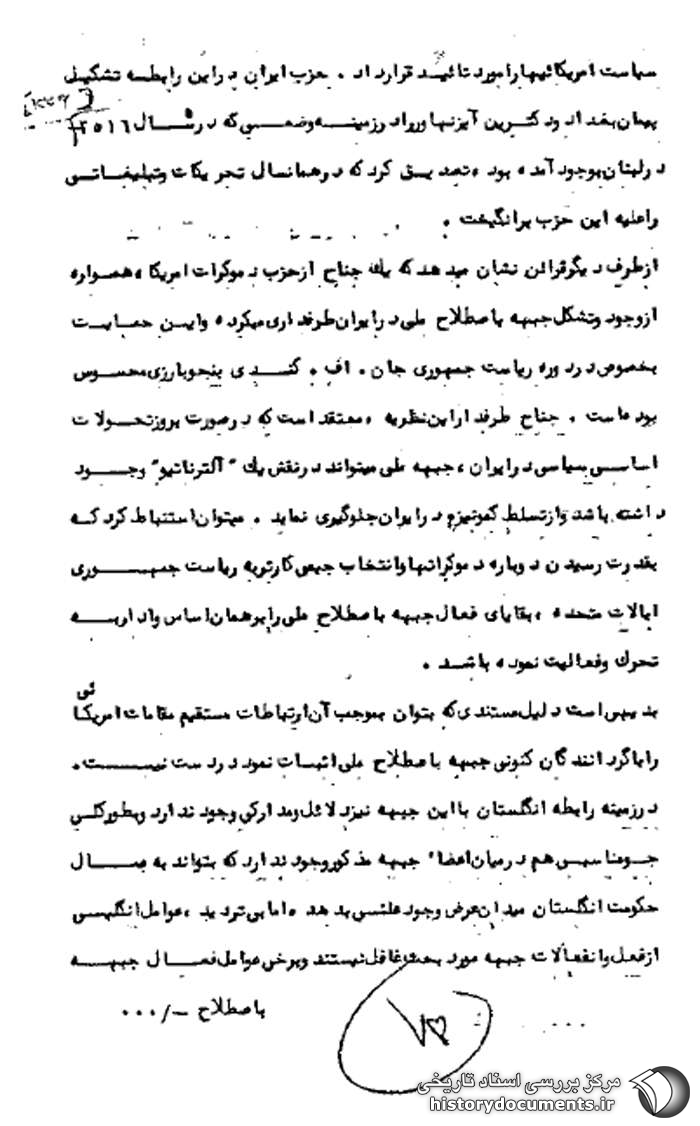 سیاست امریکائیها را مورد تائید قرار داد . حزب ایران در این رابطه تشکیل
پیمان بغداد و دکترین آیزنهاور را در زمینه وضعی که در سال ۲۵۱۶
در لبنان بوجود آمده بود ، تصدیق کرد که در همانسال تحریکات و تبلیغاتی
را علیه این حزب برانگیخت .
از طرف دیگر قرائن نشان میدهد که یک جناح از حزب دموکرات امریکا ، همواره
از وجود و تشکل جبهه باصطلاح ملی در ایران طرفداری میکرده و ایـن حمایت
بخصوص در دوره ریاست جمهوری جان . اف . کنـدی بنحو بارزی محسوس
بوده است . جناح طرفدار این نظریه ، معتقد است که در صورت بروز تحـولات
اساسی سیاسی در ایران ، جبهه ملی میتواند در نقش یک " آلترناتیو " وجـود
داشته باشد و از تسلط کمونیزم در ایران جلوگیری نماید . میتوان استنباط کرد که
بقدرت رسیدن دوباره دموکراتها و انتخاب جیمی کارتر به ریاست جمهـوری
ایالات متحده ، بقایای فعال جبهه باصطلاح ملی را بر همان اساس وادار بـه
تحرک و فعالیت نموده باشـد .
بدیهی است دلیل مستندی که بتوان بموجب آن ارتباطات مستقیم مقامات امریکائی
را با گردانندگان کنونی جبهه باصطلاح ملی اثبـات نمود در دست نیسـت .
در زمینه رابطه انگلستان با این جبهه نیز دلائل و مدارکی وجود ندارد و بطور کلی
جـو مناسبی هم در میان اعضاء جبهه مذکور وجود ندارد که بتواند به عمـال
حکومت انگلستان میدان عرض وجود علنی بدهد ، اما بی تردید ، عوامل انگلیسی
از فعل و انفعالات جبهه مورد بحث غافل نیستند و برخی عوامل فعـال جبهـه
باصطلاح -/۰۰۰
مرکز بررسی اسناد تاریخی
historydocuments.ir